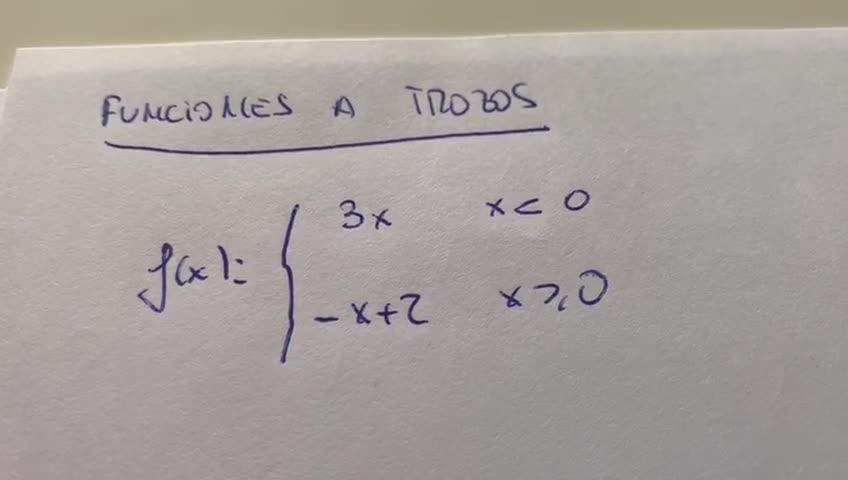 FUNCIONES A TROZOS
f(x): { 3x x < 0
-x+2 x ≥ 0